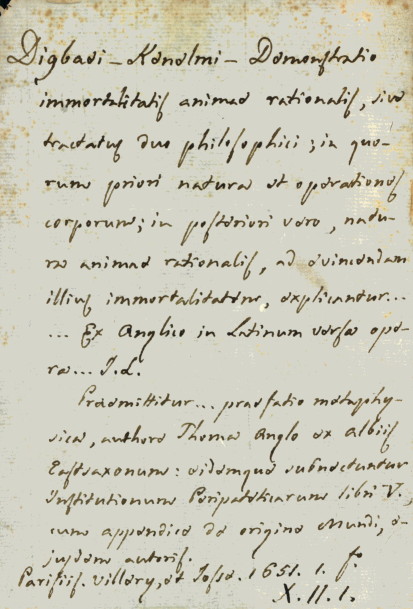 Digbaei – Kenelmi – Demonstratio
immortalitatis animae rationalis, sive
tractatus duo philosophici; in quo-
rum priori natura et operationes
corporum; in posteriori vero, natu-
ra animae rationalis, ad evincendam
illius immortalitatem, explicantur...
... Ex Anglico in Latinum versa ope-
ra... J.L.
Praemittitur... praefatio metaphy-
sica, authore Thoma Anglo ex Albiis
Eastsaxonum: eidemque subnectuntur
Institutionum Peripateticarum libri V.,
cum appendice de origine Mundi, e-
jusdem autoris.
Parisiis. Villery, et Josse. 1651. 1. f.º
X.II.1.